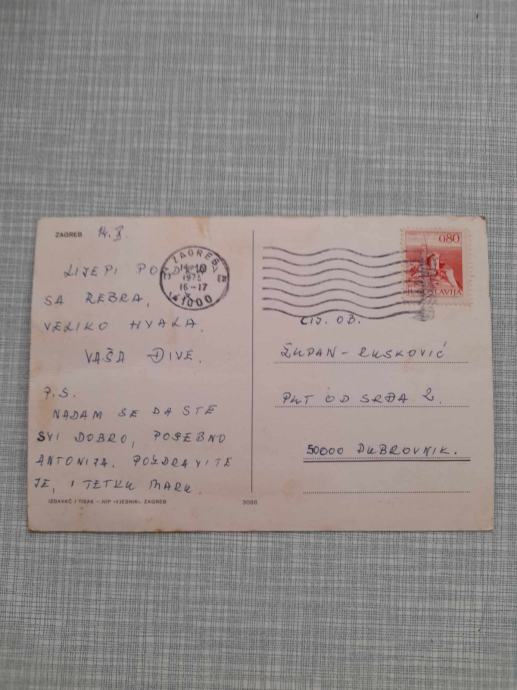 ZAGREB 14. X.
LIJEPI POZDRAV
SA REBRA,
VELIKO HVALA,
VAŠA ĐIVE.
P.S.
NADAM SE DA STE
SVI DOBRO, POSEBNO
ANTONIJA. POZDRAVITE
JE, I TETKU MARU.
IZDAVAČ I TISAK – NIP »VJESNIK«, ZAGREB
3088
ZAGREB
16-17
41000
0.80
JUGOSLAVIJA
CIJ. OB.
ŽUPAN-RUSKOVIĆ
PUT OD SRĐA 2.
50000 DUBROVNIK.